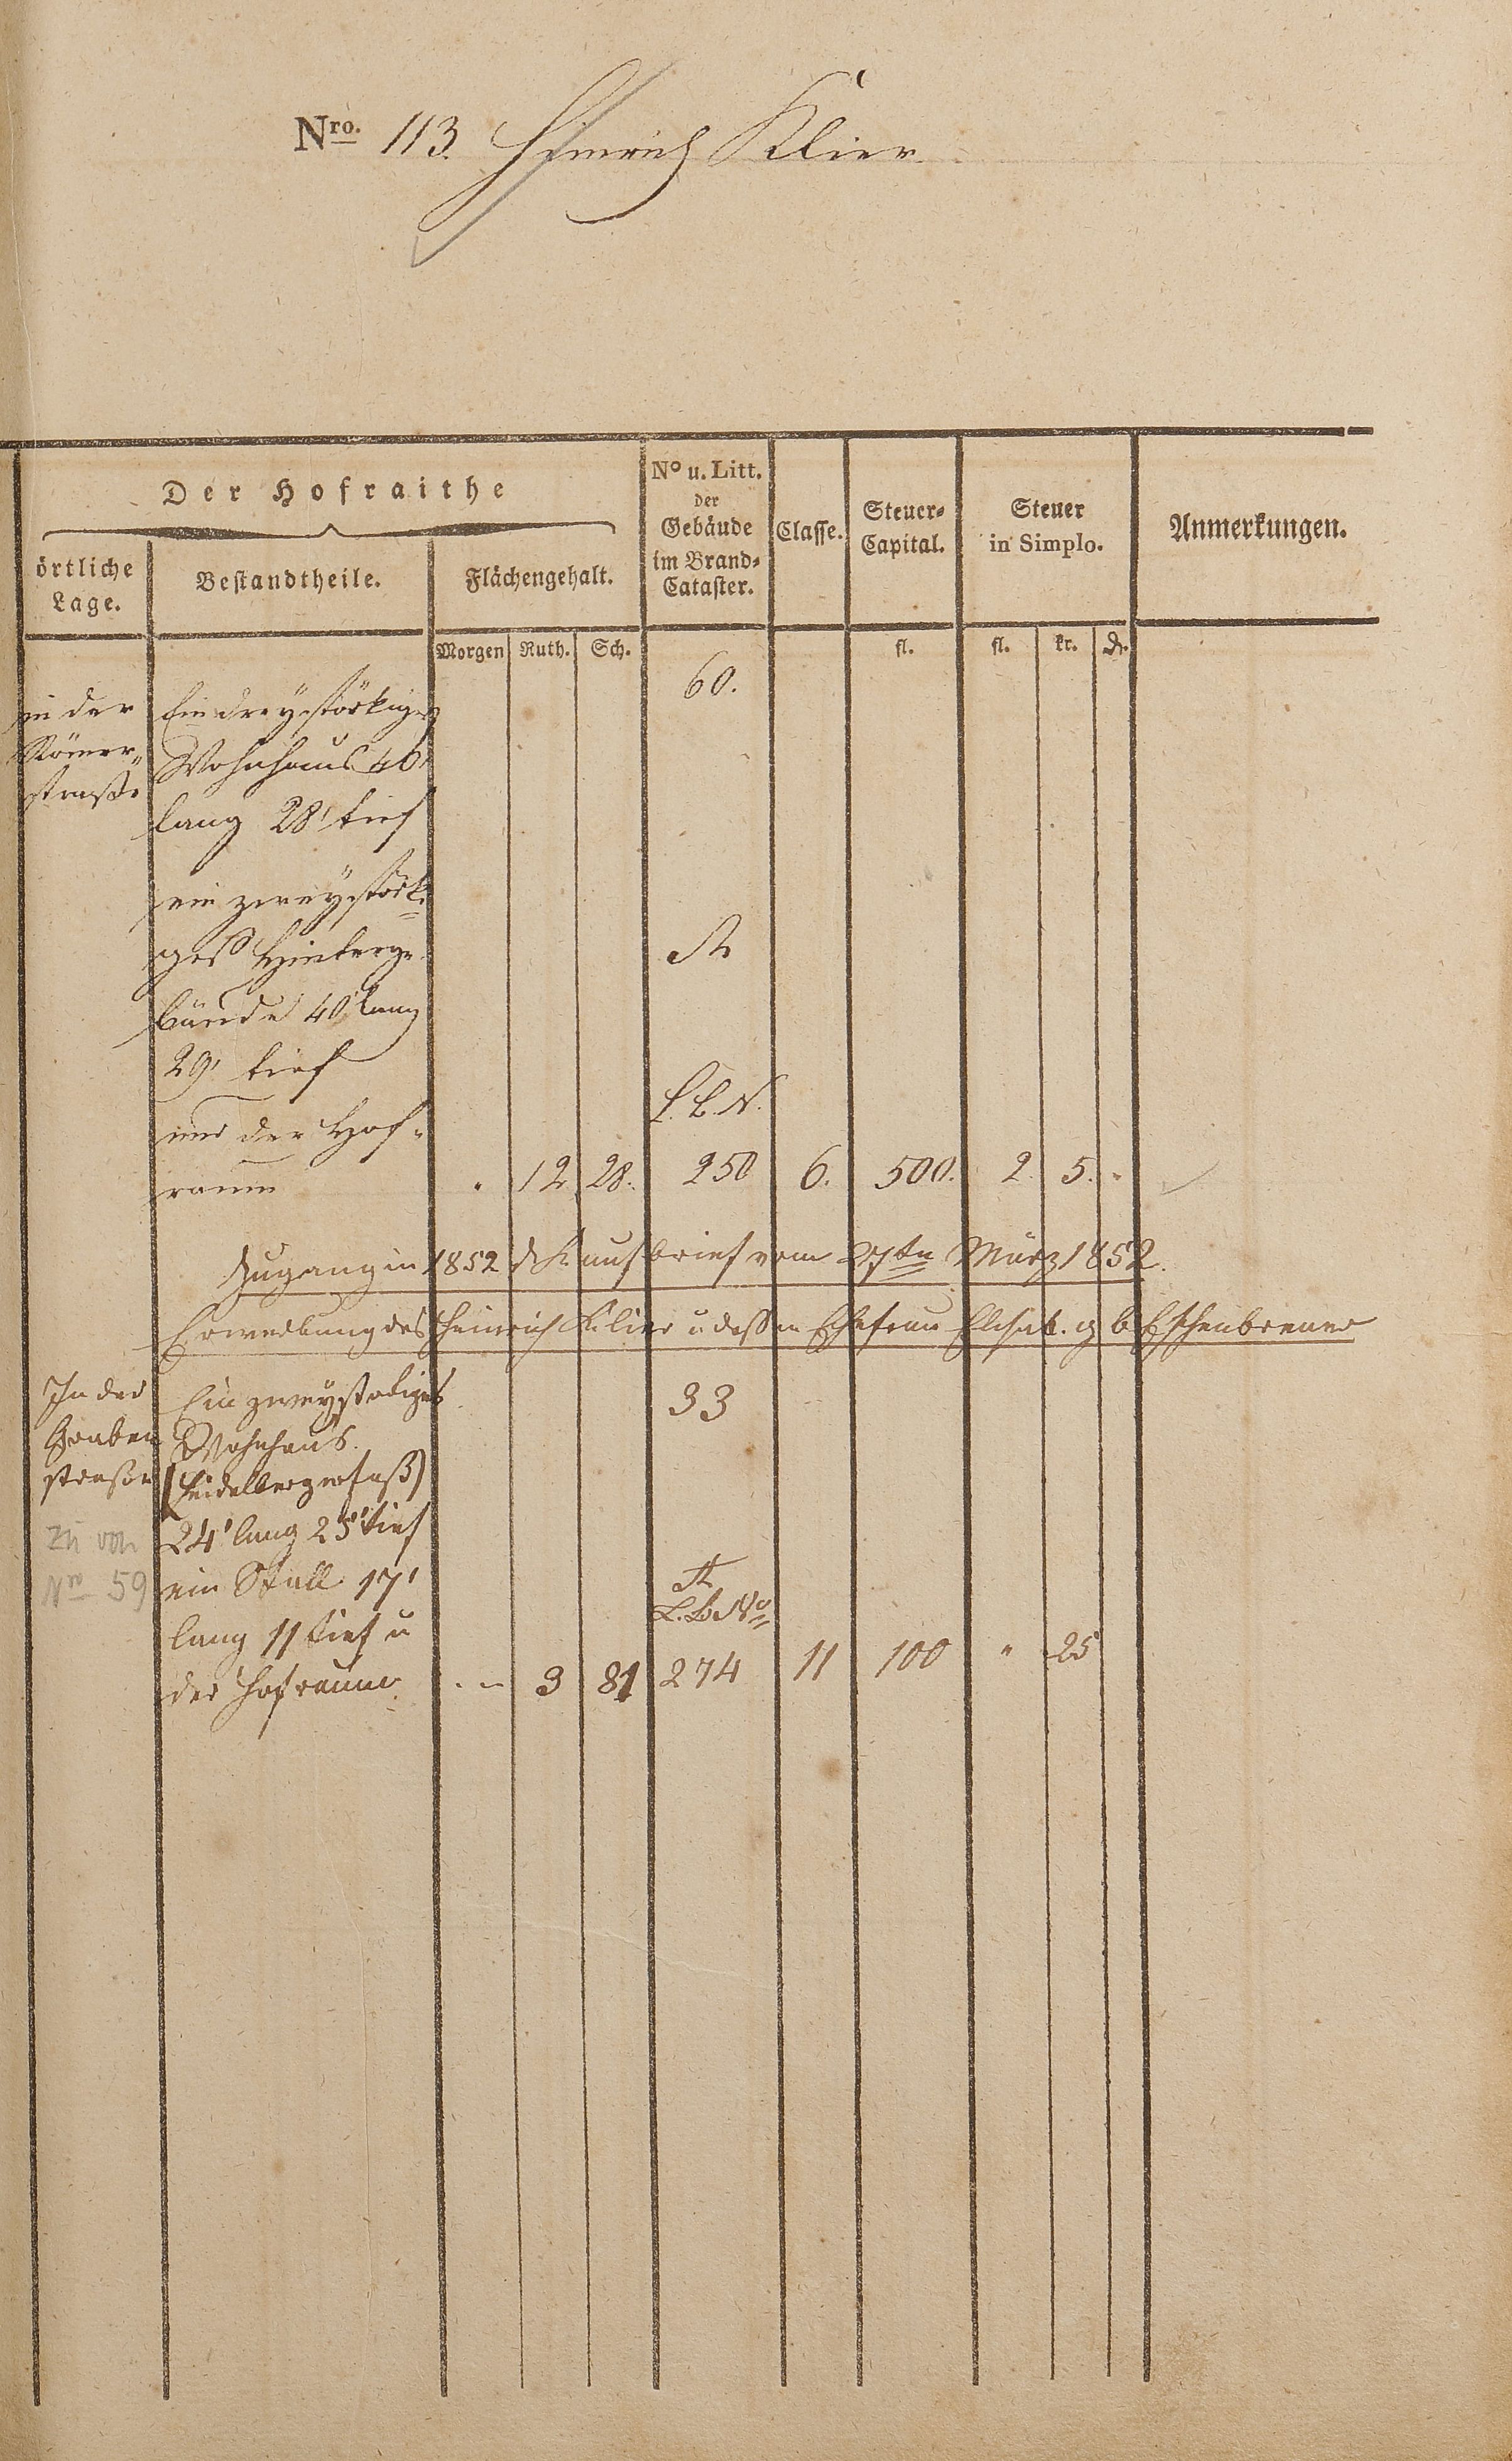 Nro. 113. Heinrich Klier
Der Hofraithe
örtliche Lage.
Bestandtheile.
Flächengehalt.
No u. Litt. der Gebäude im Brand-Cataster.
Classe.
Steuer-Capital.
Steuer in Simplo.
Anmerkungen.
Morgen Ruth. Sch. fl. fl. kr. d.
in der Ein dreystöckiges 60.
Römer- Wohnhaus 40'
straße lang 28' tief
ein zweystöcki-
ges Hinterge- A
bäude 40' lang
29' tief
und der Hof- L. B. N.
raum " 12 28. 250 6. 500. 2. 5. "
Zugang in 1852 d Kaufbrief vom 27ten März 1852.
Erwerbung des Heinrich Klier u dessen Ehefrau Elisab. geb Eschenbrenner
In der Ein zweystökiges 33
Graben Wohnhaus.
straße (Heidelbergerfaß)
zu von 24' lang 25' tief
Nro 59 ein Stall 17' A
lang 11 tief u L. B. No
der Hofraum - - 3 81 274 11 100 " 25